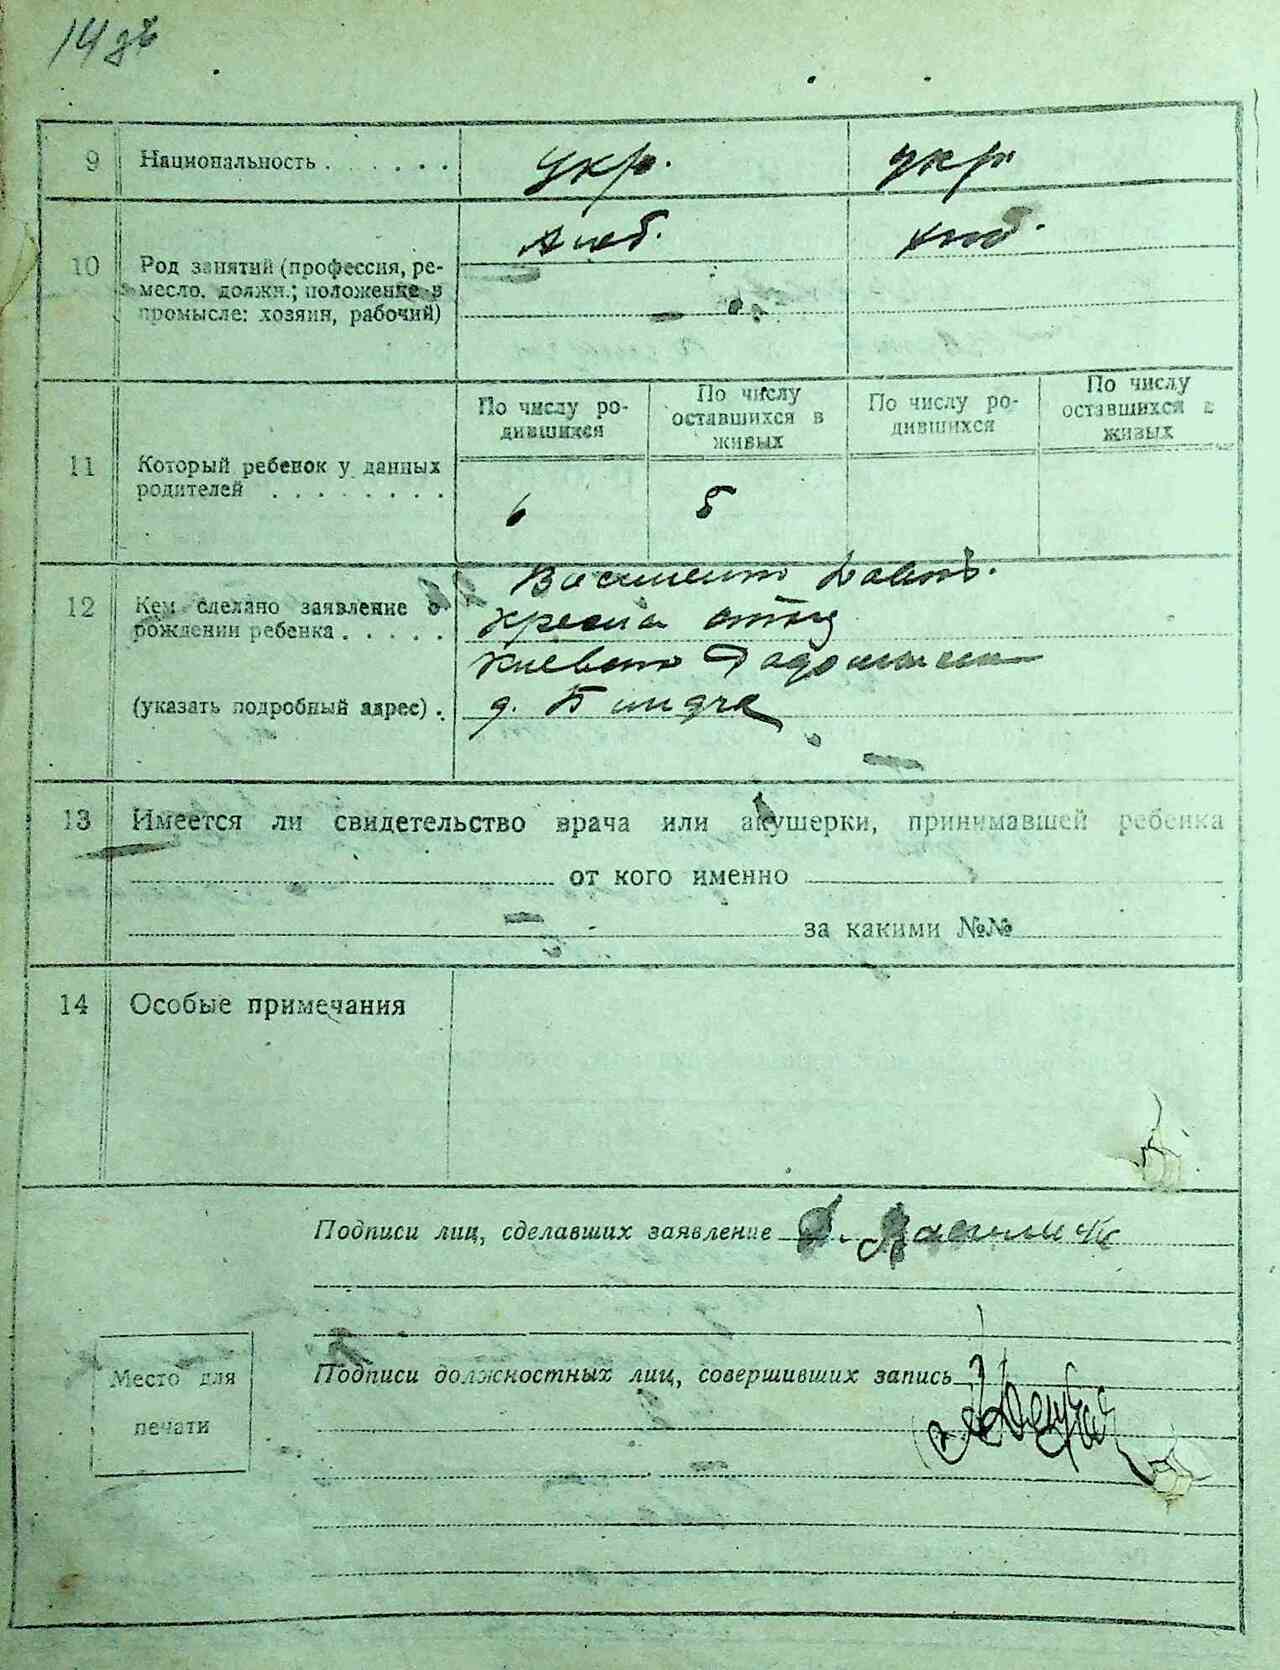 9 Национальность . . . . . . . укр. укр.
хлеб. хлеб.
10 Род занятий (профессия, ре-
месло, должн.; положение в
промысле: хозяин, рабочий)
По числу ро-
дившихся
По числу
оставшихся в
живых
По числу ро-
дившихся
По числу
оставшихся в
живых
11 Который ребенок у данных
родителей . . . . . . . .
6 5
12 Кем сделано заявление о
рождении ребенка . . . . .
(указать подробный адрес) .
отец
д.
13 Имеется ли свидетельство врача или акушерки, принимавшей ребенка
от кого именно
за какими №№
14 Особые примечания
Подписи лиц, сделавших заявление
Подписи должностных лиц, совершивших запись
Место для
печати